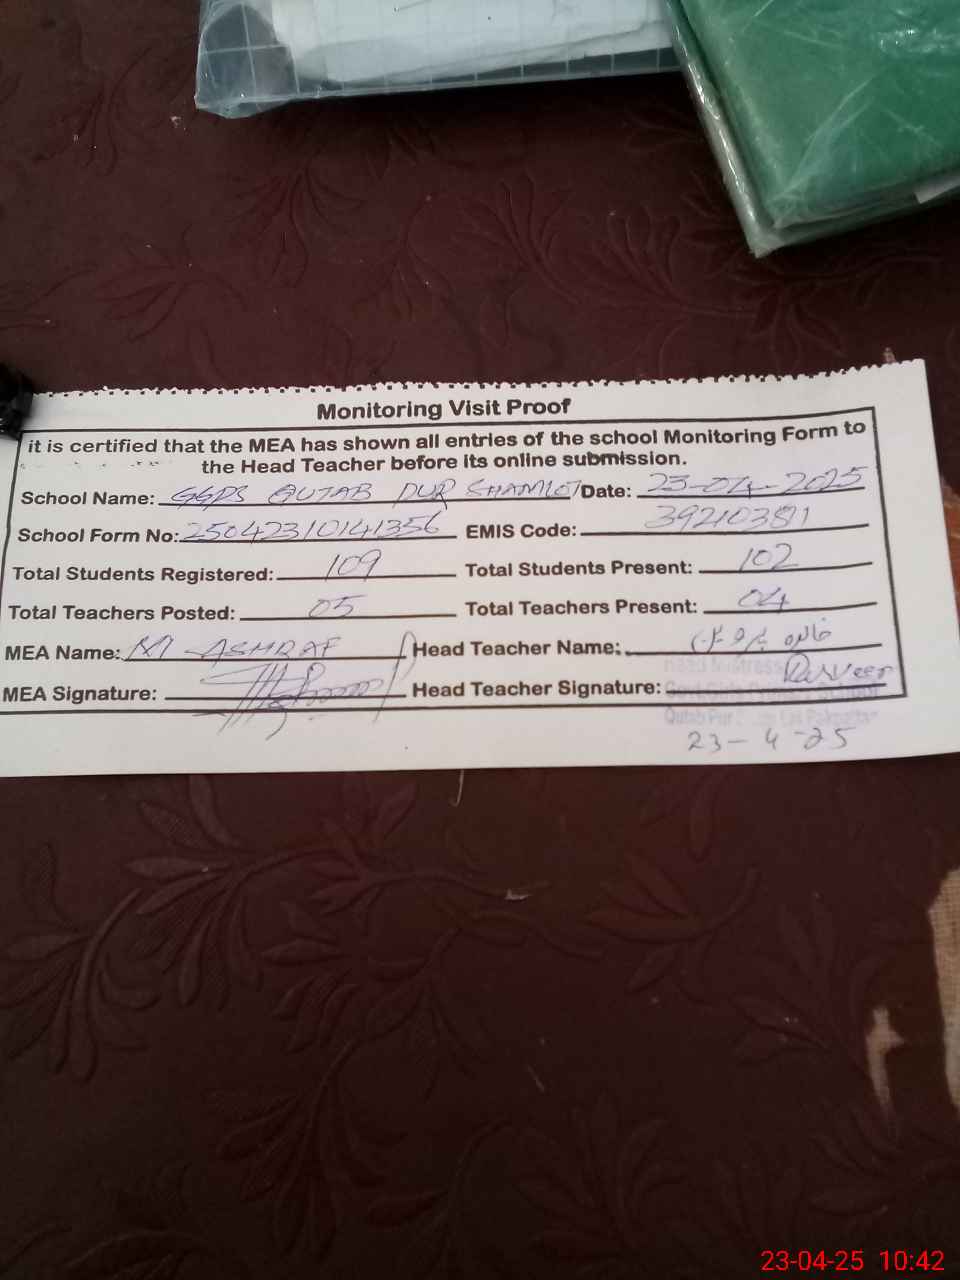 Monitoring Visit Proof
it is certified that the MEA has shown all entries of the school Monitoring Form to
the Head Teacher before its online submission.
School Name: GGPS QUTAB PUR SHAMLOT Date: 23-04-2025
School Form No: 25042310141356 EMIS Code: 39210381
Total Students Registered: 109 Total Students Present: 102
Total Teachers Posted: 05 Total Teachers Present: 04
MEA Name: M ASHRAF Head Teacher Name: خالدہ پروین
Head Mistress
MEA Signature: Head Teacher Signature: Parveen
Govt Girls Primary School
Qutab Pur Pakpattan
23-4-25
23-04-25 10:42